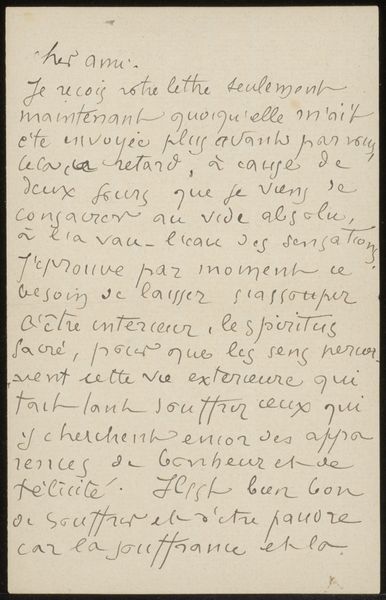 cher ami.
Je reçois votre lettre seulement
maintenant quoiqu'elle m'ait
été envoyée plus avant par vous,
cela retard, à cause de
deux jours que je viens de
consacrer au vide absolu,
à l'a vau-l'eau des sensations,
J'éprouve par moment ce
besoin de laisser s'assoupir
l'être interieur, le spiritus
sacré, pour que les sens
cette vie exterieure qui
fait tant souffrir ceux qui
y cherchent encor des appa
rences de bonheur et de
félicité. Il est bien bon
de souffrir et d'être pauvre
car la souffrance et la